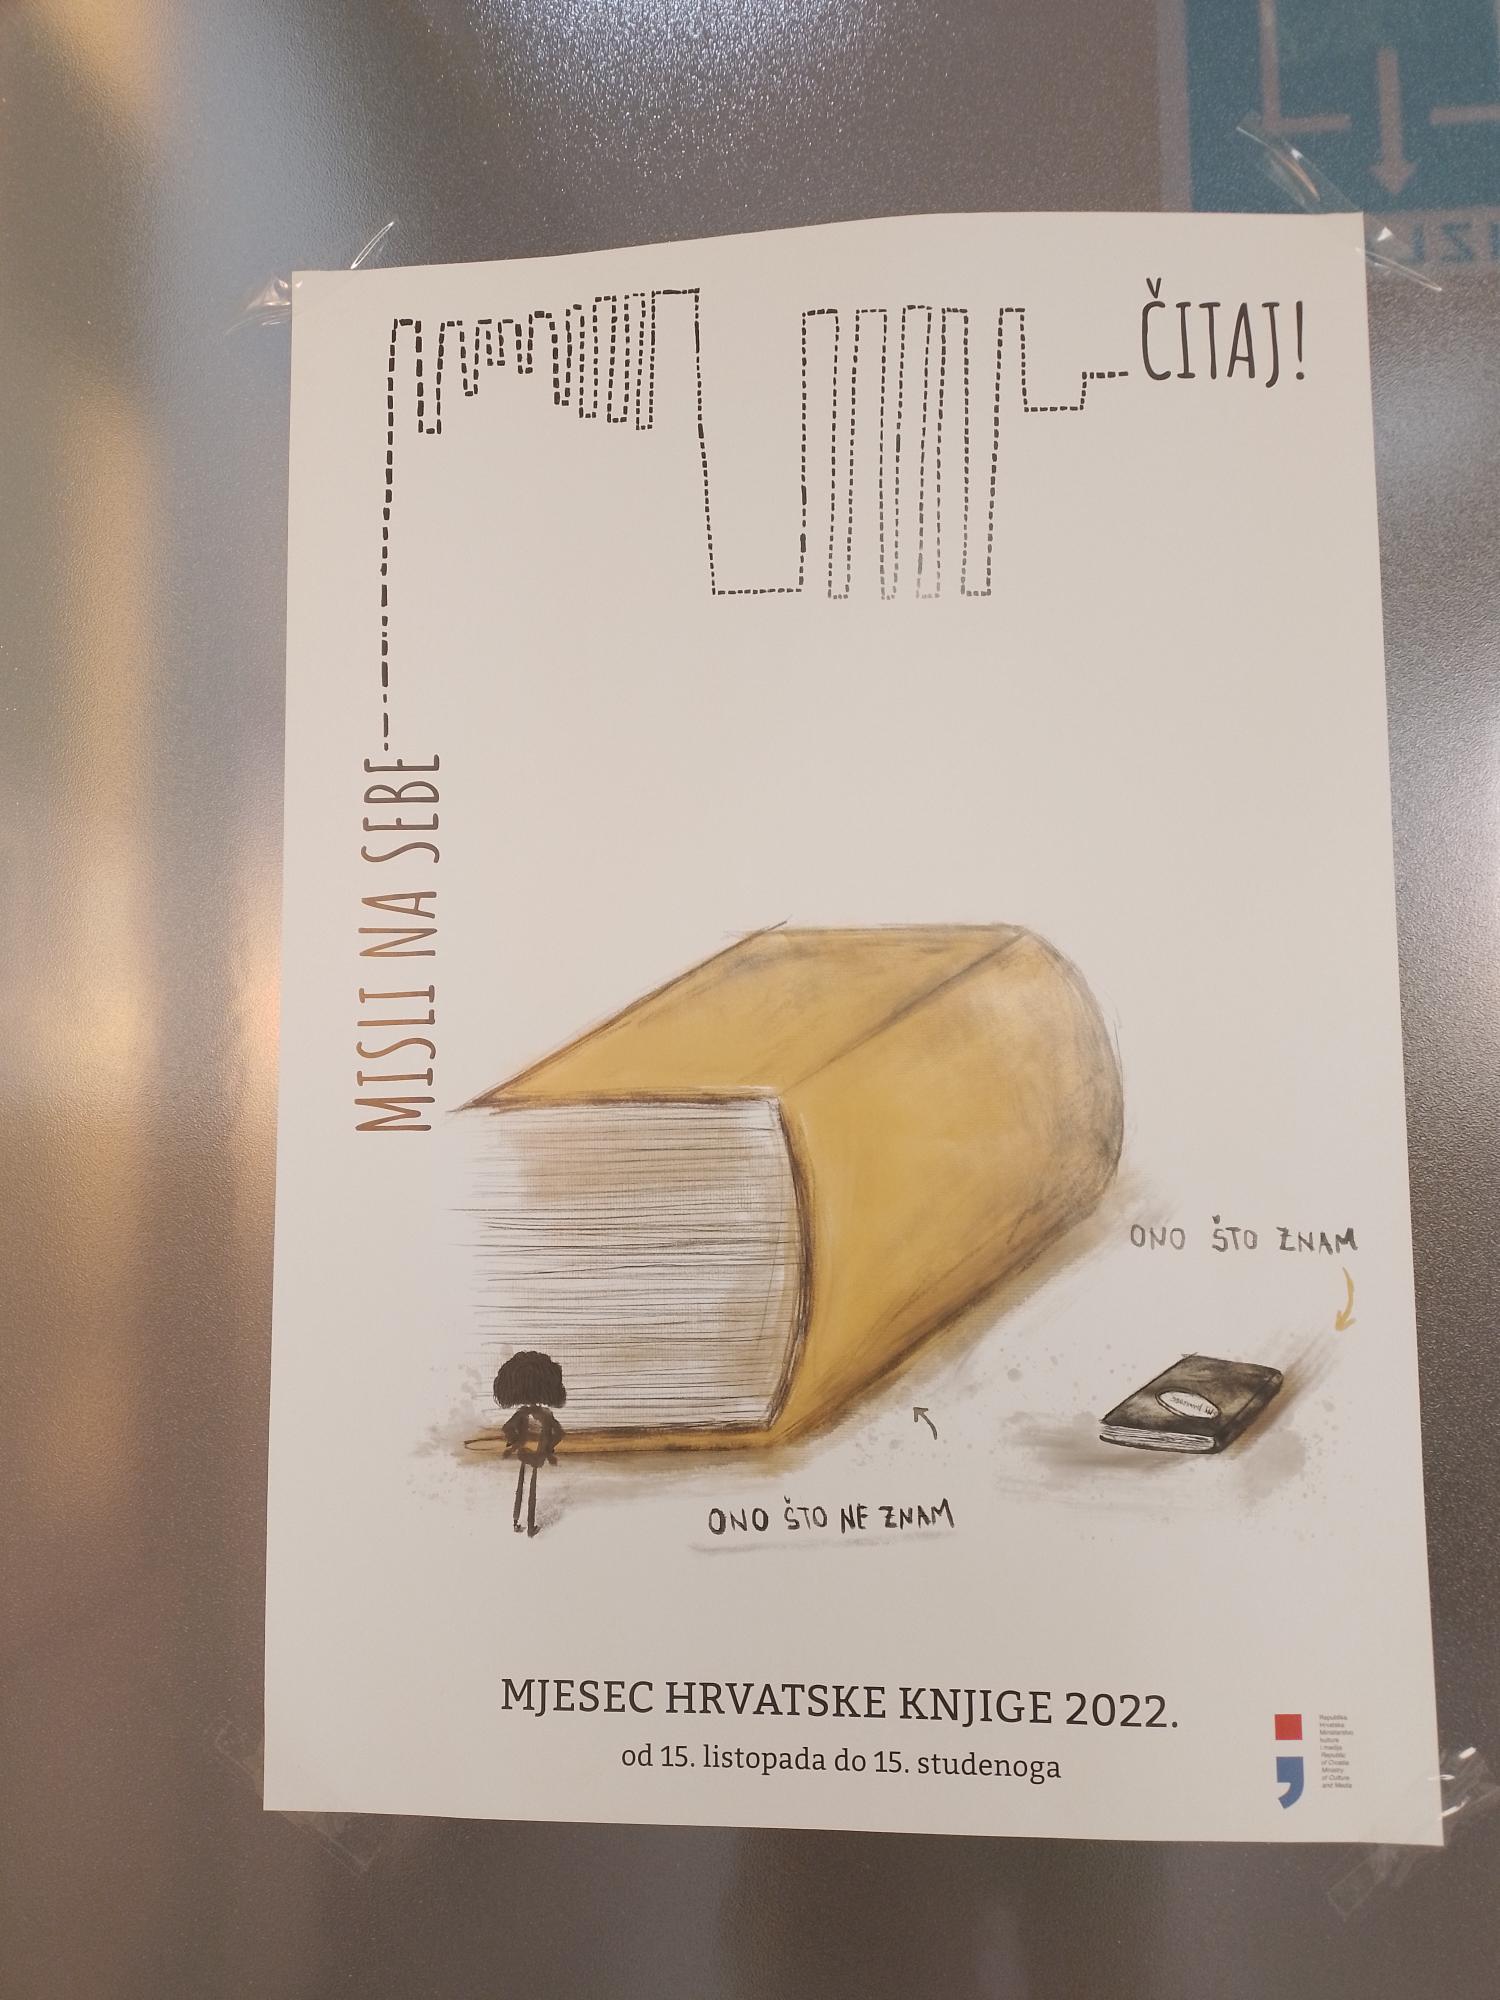 ČITAJ!
MISLI NA SEBE
ONO ŠTO ZNAM
ONO ŠTO NE ZNAM
MJESEC HRVATSKE KNJIGE 2022.
od 15. listopada do 15. studenoga
Republika
Hrvatska
Ministarstvo
kulture
i medija
Republic
of Croatia
Ministry
of Culture
and Media